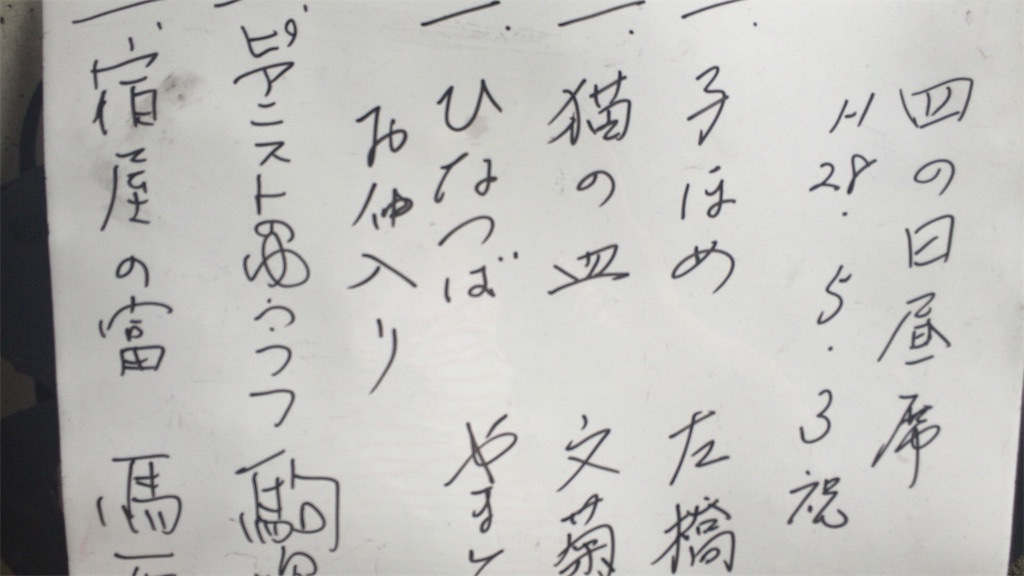 四の日昼席
H28.5.3祝
一.子ほめ 左橋
一.猫の皿 文菊
一.ひなつば やまと
お仲入り
一.ピアニストのゆううつ
一.宿屋の富 馬